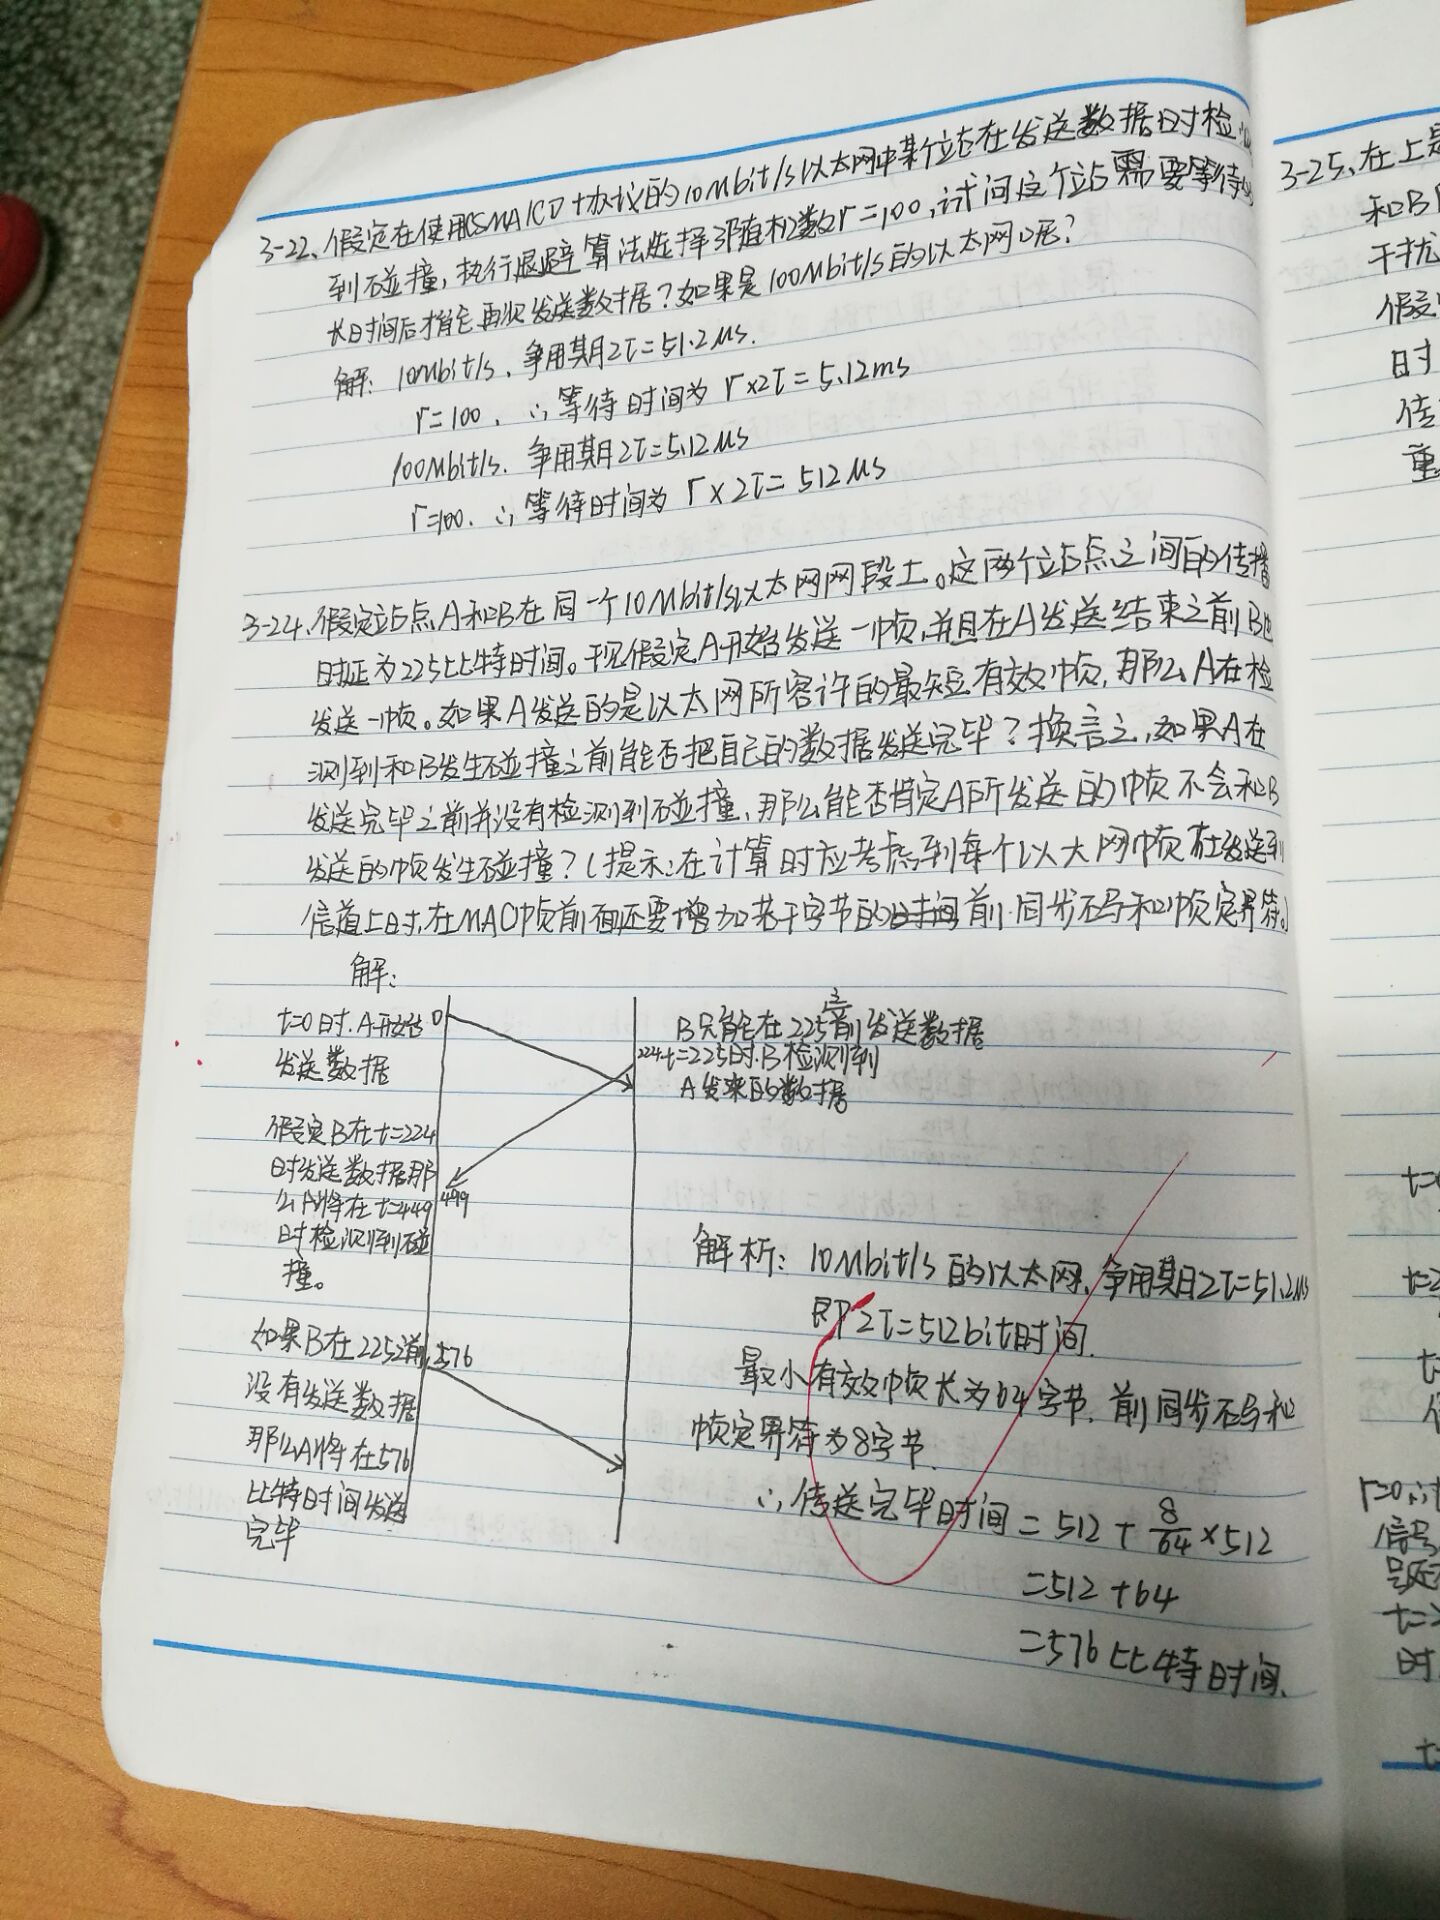 3-22、假定在使用CSMA/CD协议的10Mbit/s以太网中某个站在发送数据时检
到碰撞，执行退避算法选择了随机数r=100，试问这个站需要等待多
长时间后才能再次发送数据？如果是100Mbit/s的以太网呢？
解：10Mbit/s，争用期2τ=51.2μs.
r=100，∴等待时间为 r×2τ=5.12ms
100Mbit/s. 争用期2τ=5.12μs
r=100. ∴等待时间为 r×2τ=512μs
3-24、假定站点A和B在同一个10Mbit/s以太网网段上。这两个站点之间的传播
时延为225比特时间。现假定A开始发送一帧，并且在A发送结束之前B也
发送一帧。如果A发送的是以太网所容许的最短有效帧，那么A在检
测到和B发生碰撞之前能否把自己的数据发送完毕？换言之，如果A在
发送完毕之前并没有检测到碰撞，那么能否肯定A所发送的帧不会和B
发送的帧发生碰撞？（提示：在计算时应考虑到每个以太网帧在发送到
信道上时，在MAC帧前面还要增加若干字节的时间前同步码和帧定界符。）
解：
t=0时.A开始
发送数据
0
B只能在225之前发送数据
224 t=225时.B检测到
A发来的数据
假定B在t=224
时发送数据那
么A将在t=449
时检测到碰
撞。
449
如果B在225之前
没有发送数据
那么A将在576
比特时间发送
完毕
576
解析：10Mbit/s的以太网，争用期2τ=51.2μs
即2τ=512bit时间.
最小有效帧长为64字节，前同步码和
帧定界符为8字节.
∴传送完毕时间=512+8/64×512
=512+64
=576比特时间.
3-25、在上
和B
干扰
假定
时
传
重
t=
t=2
t=
r=0
信号
t=2
时
t=